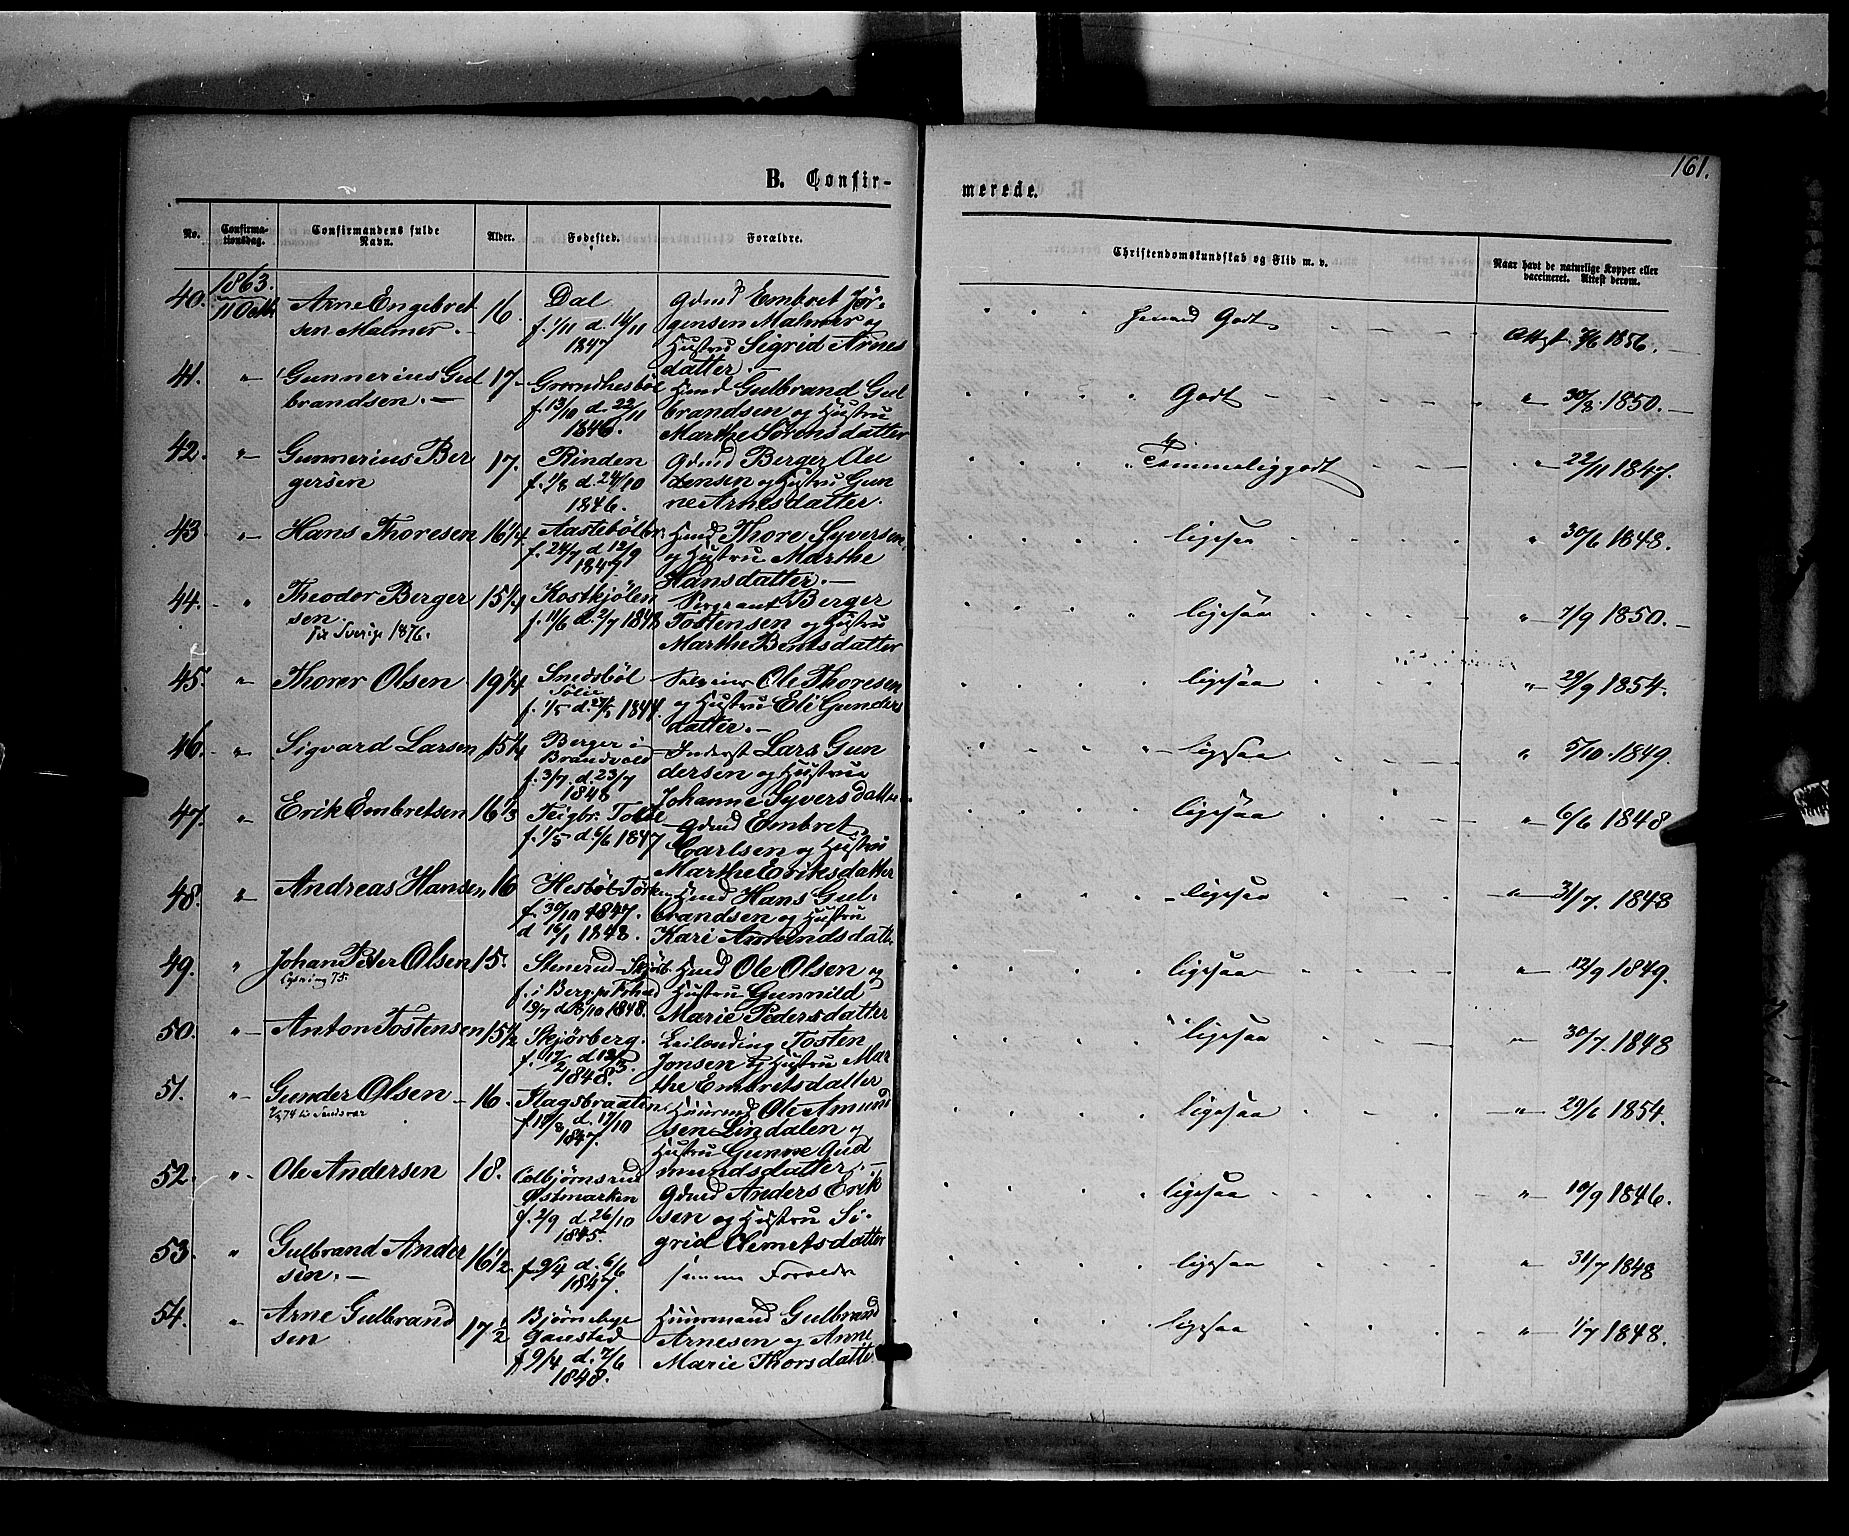 161.
B. Confir-
merede.
No.
Confirma-
tionsdag.
Confirmandens fulde
Navn.
Alder.
Fødested.
Forældre.
Christendomskundskab og Flid m. v.
Naar havt de naturlige Kopper eller
vaccineret. Attest derom.
1863.
40. 11 Octb. Arne Engebret
sen Malmer. 16. Dal
f. 1/11 d. 14/11
1847
Gdmd Embret Jør-
gensen Malmer og
Hustru Sigrid Arnes
datter.
Godt
Attst 1856.
41. " Gunnerius Gul
brandsen. 17
f. 13/10 d. 22/11
1846.
Hmd Gulbrand Gul
brandsen og Hustru
Marthe Sørensdatter
Godt
" 30/8 1850.
42. " Gunnerius Ber
gersen 17. Rinden
f. 1/8 d. 24/10
1846.
Gdmd Berger Au
densen og Hustru Gun
ne Arnesdatter.
Temmelig godt
" 22/11 1847.
43. " Hans Thoresen 16 1/4
f. 24/7 d. 12/9
1847
Hmd Thore Syversen
og Hustru Marthe
Hansdatter.
ligesaa
" 30/6 1848.
44. " Theodor Berger
sen.
til Sverige 1876.
15 1/4 Kostkjølen
f. 11/6 d. 2/7 1848
Sergeant Berger
Tostensen og Hustru
Marthe Berntsdatter
ligesaa
" 7/9 1850.
45. " Thorer Olsen 19 1/4 Snedsbøl
f. 1/5 1844
Ole Thoresen
og Hustru Eli Gunders
datter.
ligesaa
" 29/9 1854.
46. " Sigvard Larsen 15 1/4 Berger i
Brandvold
f. 3/7 d. 23/7
1848
Inderst Lars Gun
dersen og Hustrue
Johanne Syversdatter
ligesaa
" 5/10 1849.
47. " Erik Embretsen 16 1/3
f. 1/5 d. 6/6 1847
Gdmd Embret
Carlsen og Hustru
Marthe Eriksdatter
ligesaa
" 6/6 1848
48. " Andreas Hansen 16 Hesbøl
f. 30/10 1847.
d 16/1 1848.
Hmd Hans Gul-
brandsen og Hustru
Kari Amundsdatter
ligesaa
" 31/7. 1848
49. " Johan Peter Olsen
Lysning 75.
15. Stenerud-Skjørb.
f. i Berg
19/7 d. 8/10 1848.
Hmd Ole Olsen og
Hustru Gunnild
Marie Pedersdatter
ligesaa
" 12/9 1849.
50. " Anton Tostensen 15 1/2 Skjørberg.
f. 17/2 d. 12/3.
1848.
Leilænding Tosten
Jonsen og Hustru Mar
the Embretsdatter
ligesaa
" 30/7. 1848
51. " Gunder Olsen 16. Flagsbraaten
f. 19/8 d. 17/10
1847.
Huusmd Ole Amund
sen Lindalen og
Hustru Gunne Gud
mundsdatter.
ligesaa
" 29/6 1854.
52. " Ole Andersen 18. Colbjørnsrud
Østmarken
f. 2/9 d. 26/10
1845.
Gdmd Anders Erik
sen og Hustru Si-
grid Clemetsdatter
ligesaa
" 19/9 1846.
53. " Gulbrand Ander
sen. 16 1/2.
f. 9/4 d. 6/6
1847.
samme Forældre
ligesaa
" 31/7 1848
54. " Arne Gulbrand
sen 17 1/2 Bjørnebye
Gaustad
f. 9/4 d. 7/6
1848.
Huusmand Gulbrand
Arnesen og Anne
Marie Thorsdatter
ligesaa
" 1/7 1848.